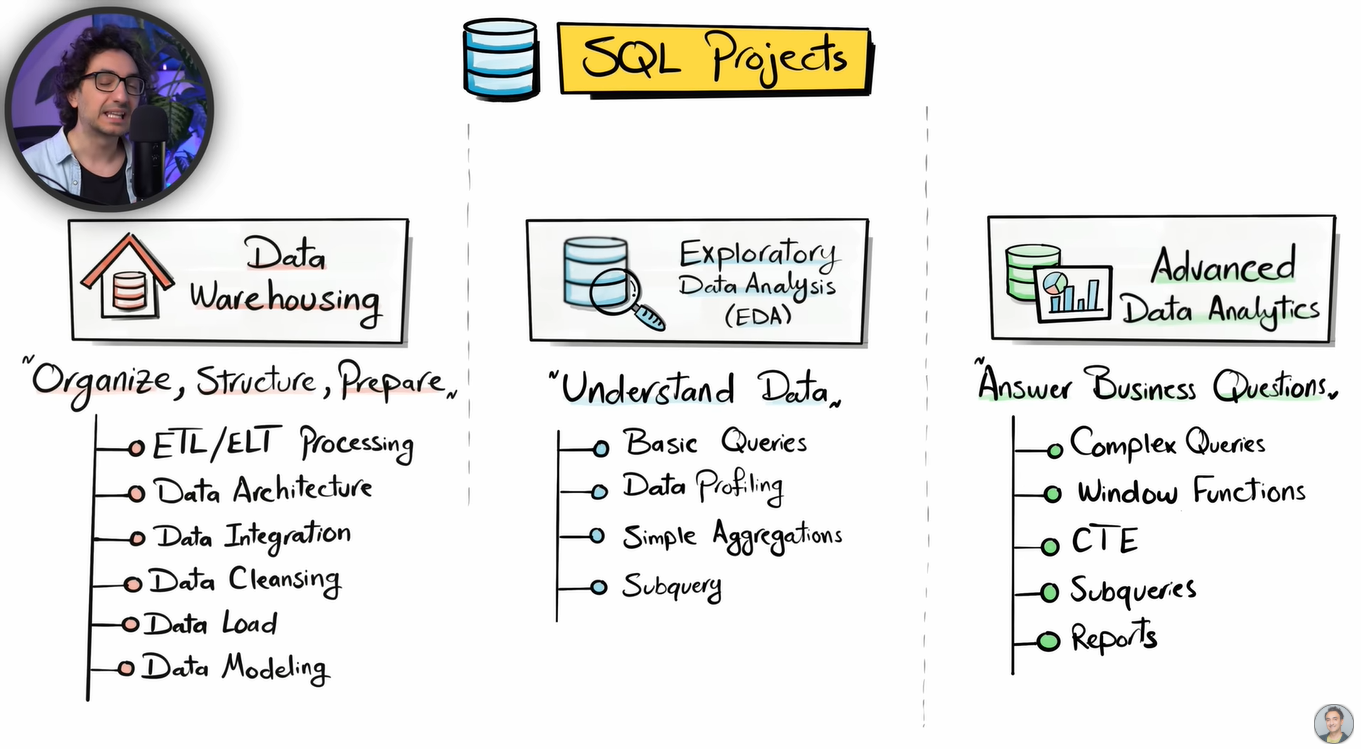 SQL Projects
Data
Warehousing
"Organize, Structure, Prepare"
ETL/ELT Processing
Data Architecture
Data Integration
Data Cleansing
Data Load
Data Modeling
Exploratory
Data Analysis
(EDA)
"Understand Data"
Basic Queries
Data Profiling
Simple Aggregations
Subquery
Advanced
Data Analytics
"Answer Business Questions"
Complex Queries
Window Functions
CTE
Subqueries
Reports